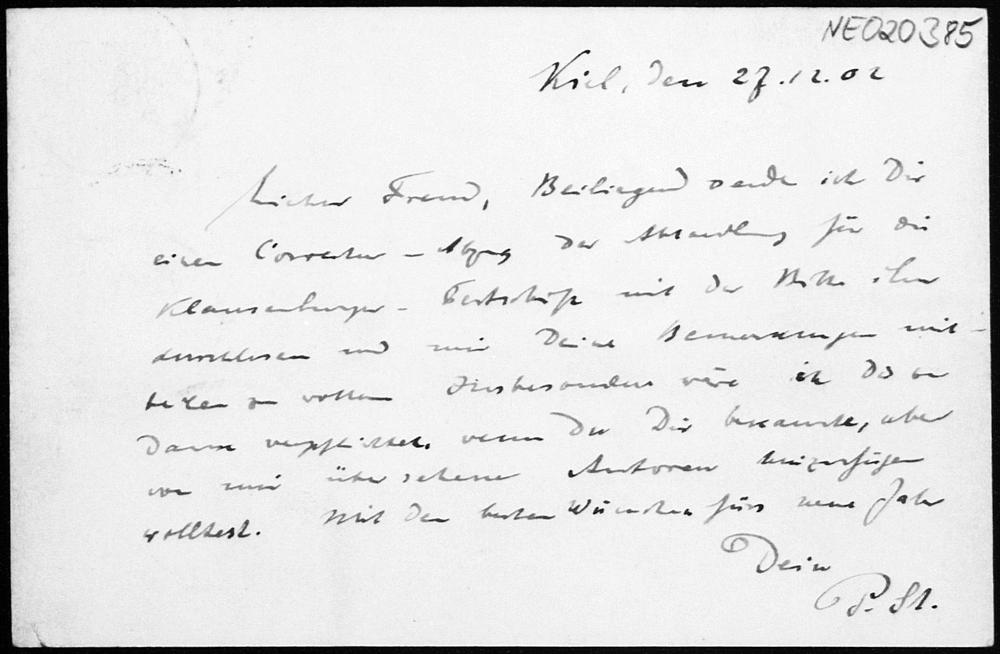 NEO20385
Kiel, den 27.12.02
Lieber Freund, Beiliegend sende ich Dir
einen Correctur-Abzug der Abhandlung für die
Klausenburger-Festschrift mit der Bitte ihn
durchlesen und mir Deine Bemerkungen mit-
teilen zu wollen. Insbesondere wäre ich Dir zu
Dank verpflichtet, wenn Du Dir bekannte, aber
von mir übersehene Autoren hinzufügen
wolltest. Mit den besten Wünschen fürs neue Jahr
Dein
P. St.